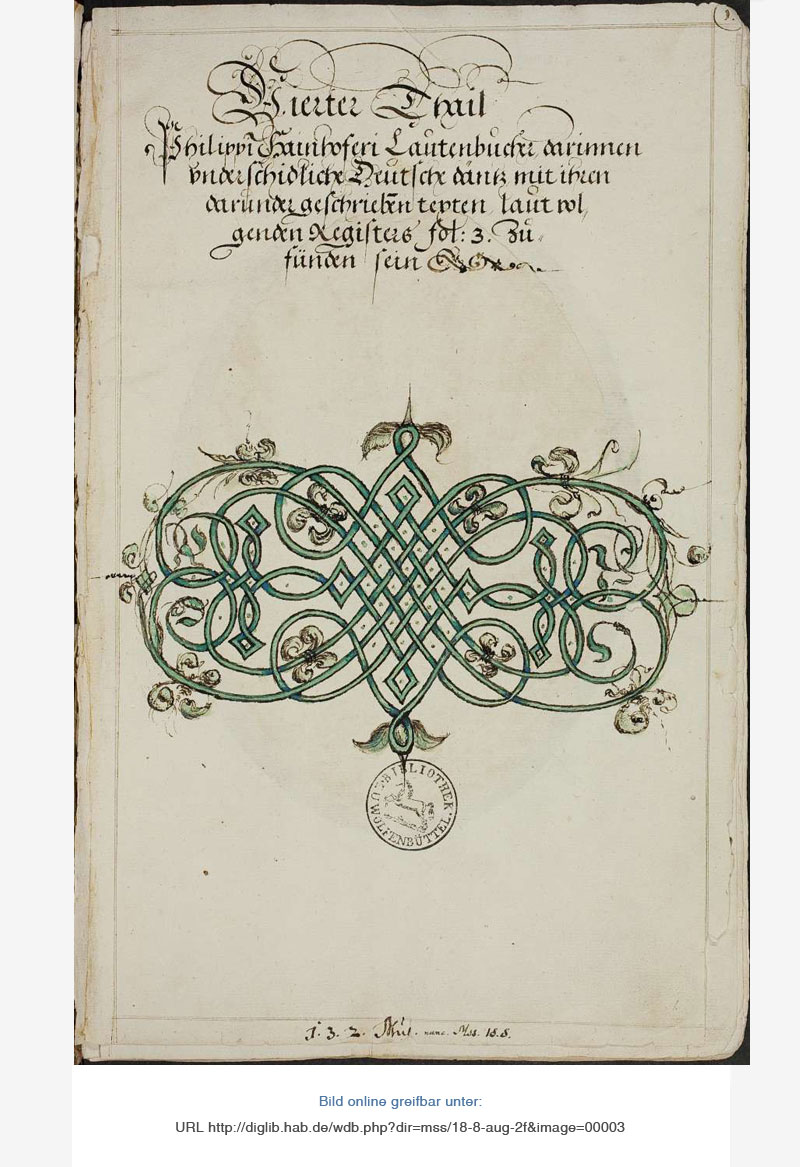 1.
Vierter Thail
Philippi Hainhoferi Lautenbücher darinnen
vnderschidliche Deütsche däntz mit ihren
darunder geschrieben texten laut vol,
genden Registers fol: 3. zu
finden sein
BIBLIOTHEK
WOLFENBÜTTEL.
1. 3. 2. Mus. nunc. Mss. 18. 8.
Bild online greifbar unter:
URL http://diglib.hab.de/wdb.php?dir=mss/18-8-aug-2f&image=00003